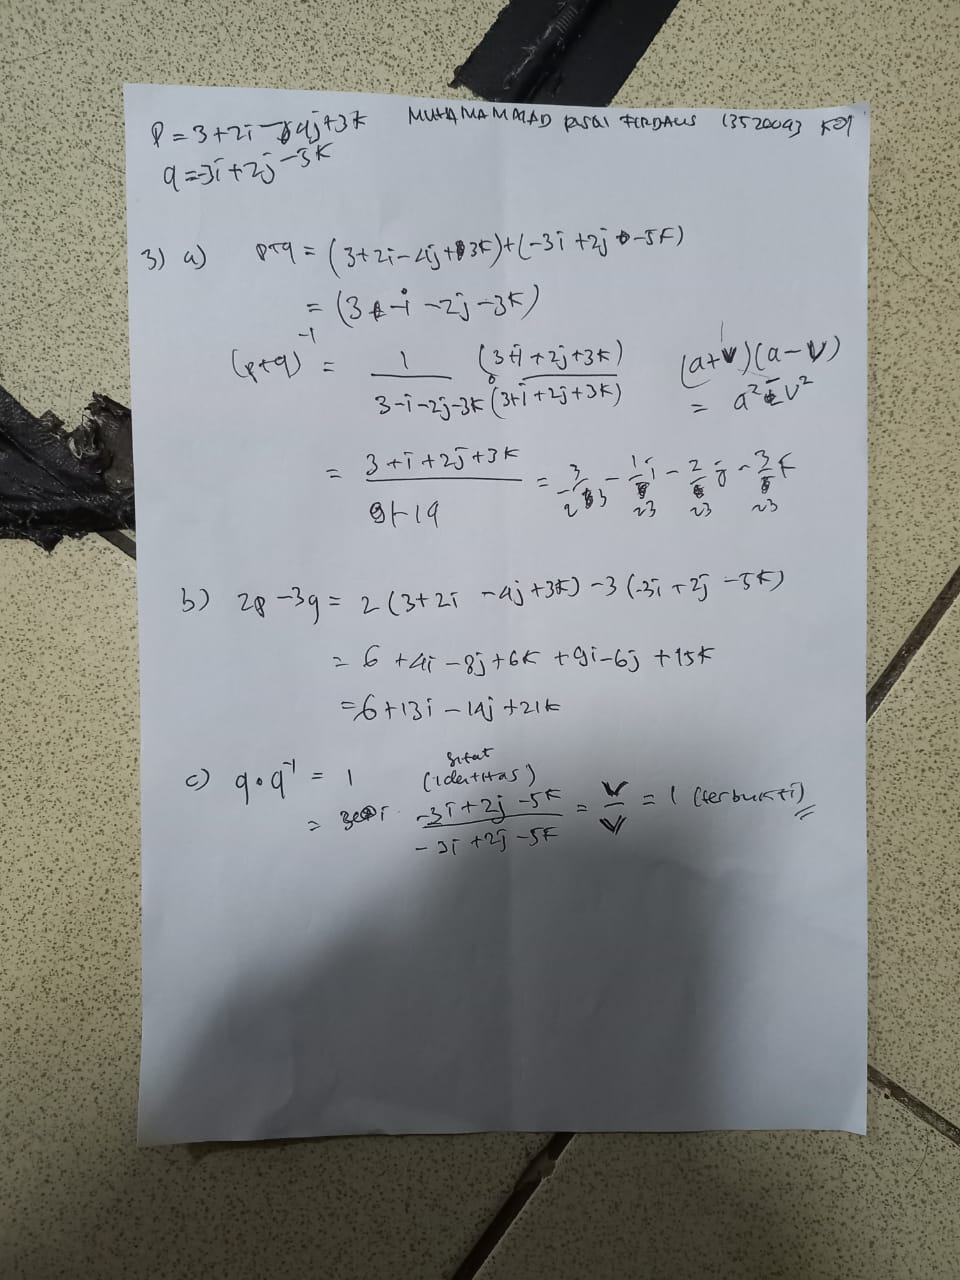 P = 3+2i-4j+3k MUHAMAMMAD FIRDAUS 13520093 K01
q = -3i+2j-3k
3) a) p+q = (3+2i-4j+3k)+(-3i+2j-5k)
= (3-i-2j-3k)
(p+q)^-1 = 1/(3-i-2j-3k) (3+i+2j+3k)/(3+i+2j+3k) (a+v)(a-v)
= a²-v²
= (3+i+2j+3k)/(9+-14) = 3/23 - 1/23 i - 2/23 j - 3/23 k
b) 2p-3q = 2(3+2i-4j+3k)-3(-3i+2j-5k)
= 6+4i-8j+6k+9i-6j+15k
= 6+13i-14j+21k
c) q·q^-1 = 1 sifat (identitas)
= (-3i+2j-5k)/(-3i+2j-5k) = V/V = 1 (terbukti)